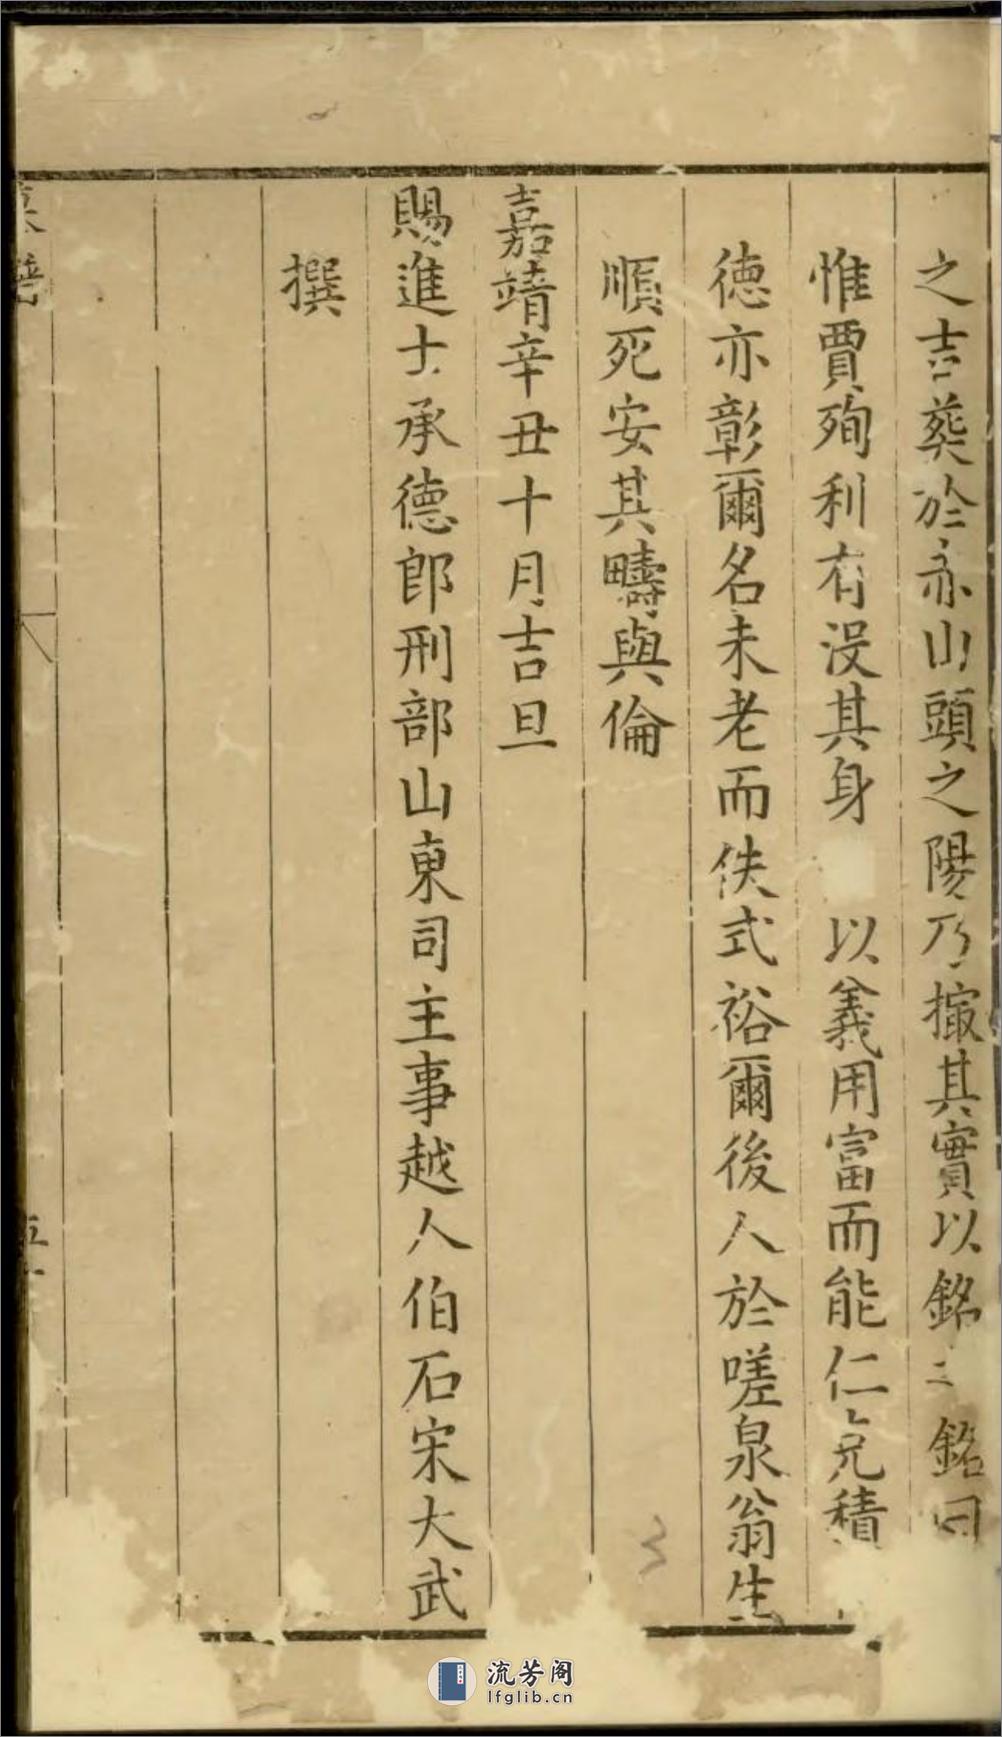 之吉葬於赤山頭之陽乃撮其實以銘三銘曰
惟賈殉利有没其身 以義用富而能仁充積
德亦彰爾名未老而佚式裕爾後人於嗟泉翁生
順死安其疇與倫
嘉靖辛丑十月吉旦
賜進士承德郎刑部山東司主事越人伯石宋大武
撰
流芳阁
lfglib.cn